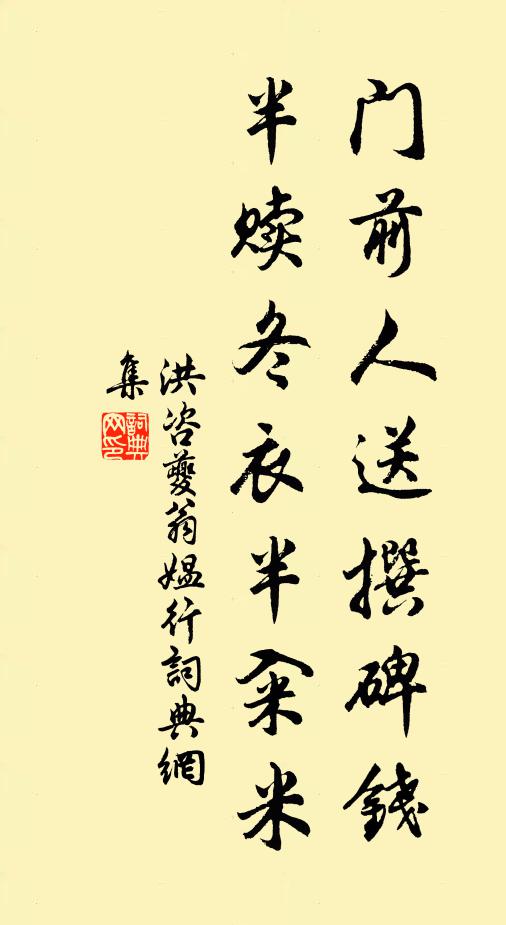 门前人送撰碑錢
半赎冬衣半籴米
洪咨夔翁媪行詞典網
集
詞典网印